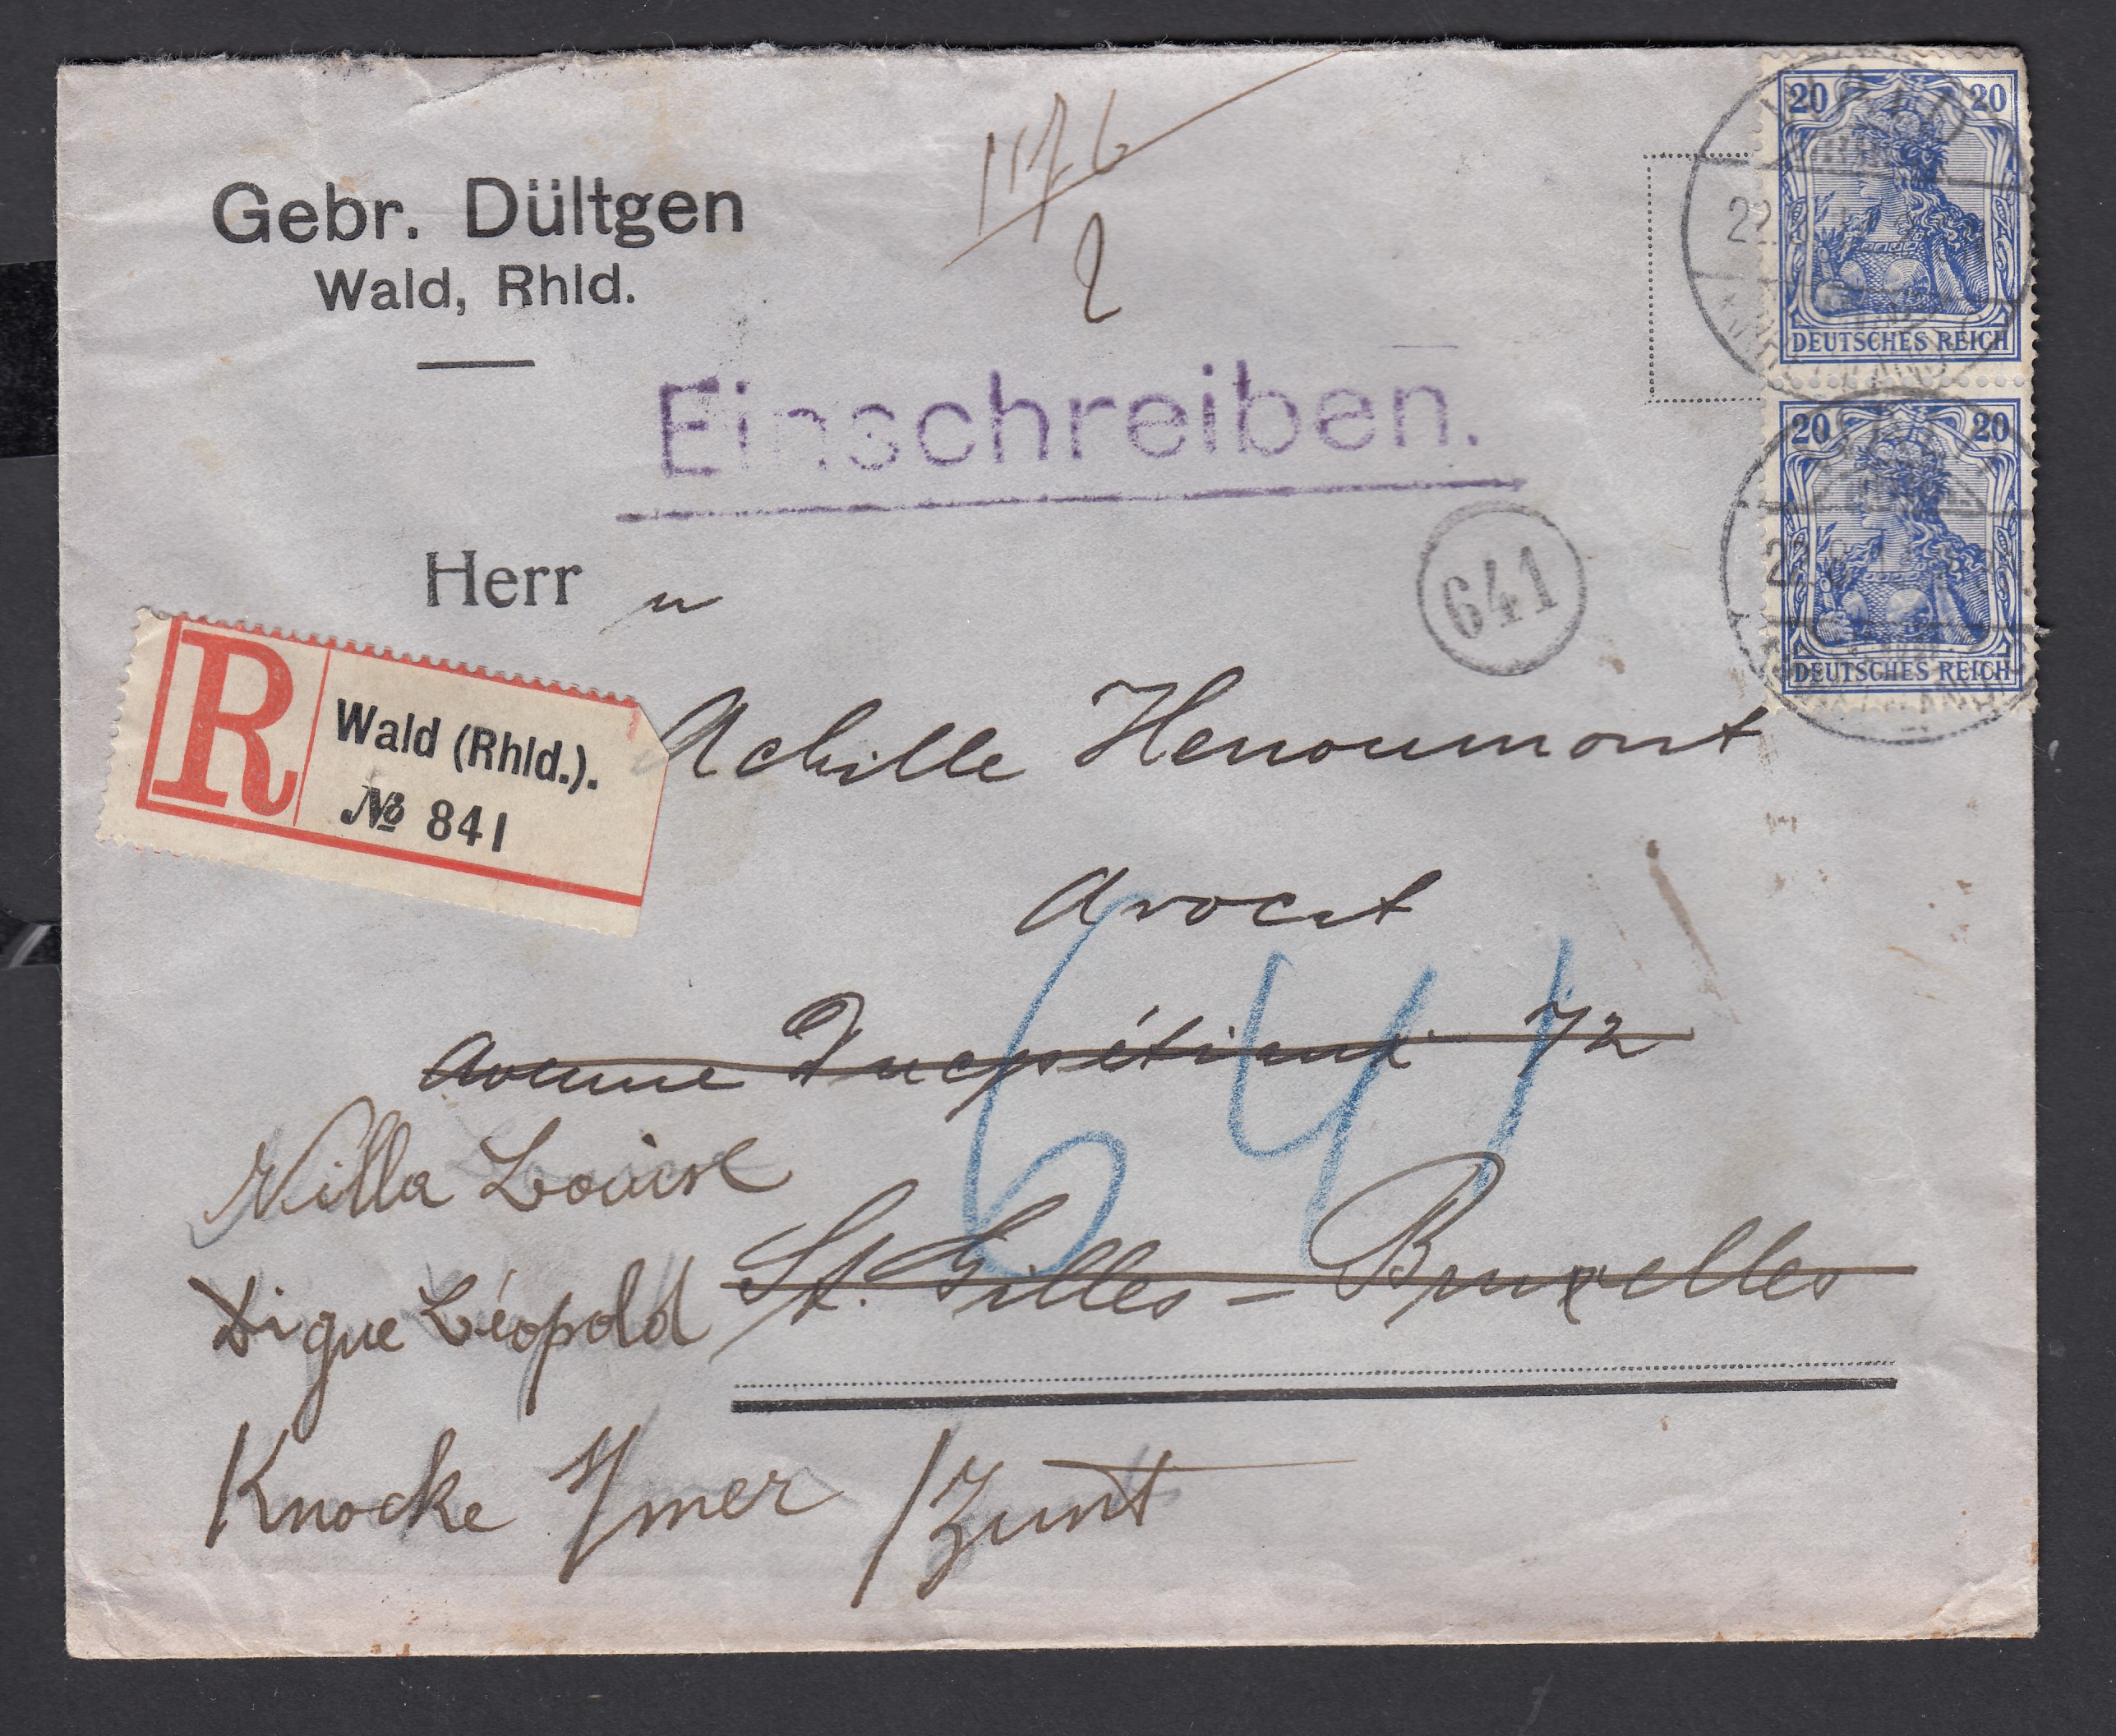 Gebr. Dültgen
Wald, Rhld.
1176
2
20 20
DEUTSCHES REICH
20 20
DEUTSCHES REICH
Einschreiben.
641
Herr n
R
Wald (Rhld.).
№ 841
Achille Henoumont
Avocat
Avenue Ducpétiaux 72
641
Villa Louise
St. Gilles - Bruxelles
Digue Léopold
Knocke s/mer